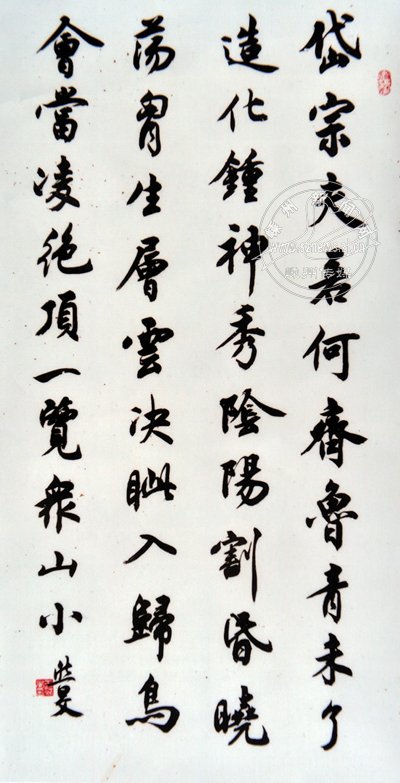 岱宗夫若何齊魯青未了
造化鍾神秀陰陽割昏曉
荡胷生層雲决眦入歸鳥
會當凌絶頂一覽衆山小